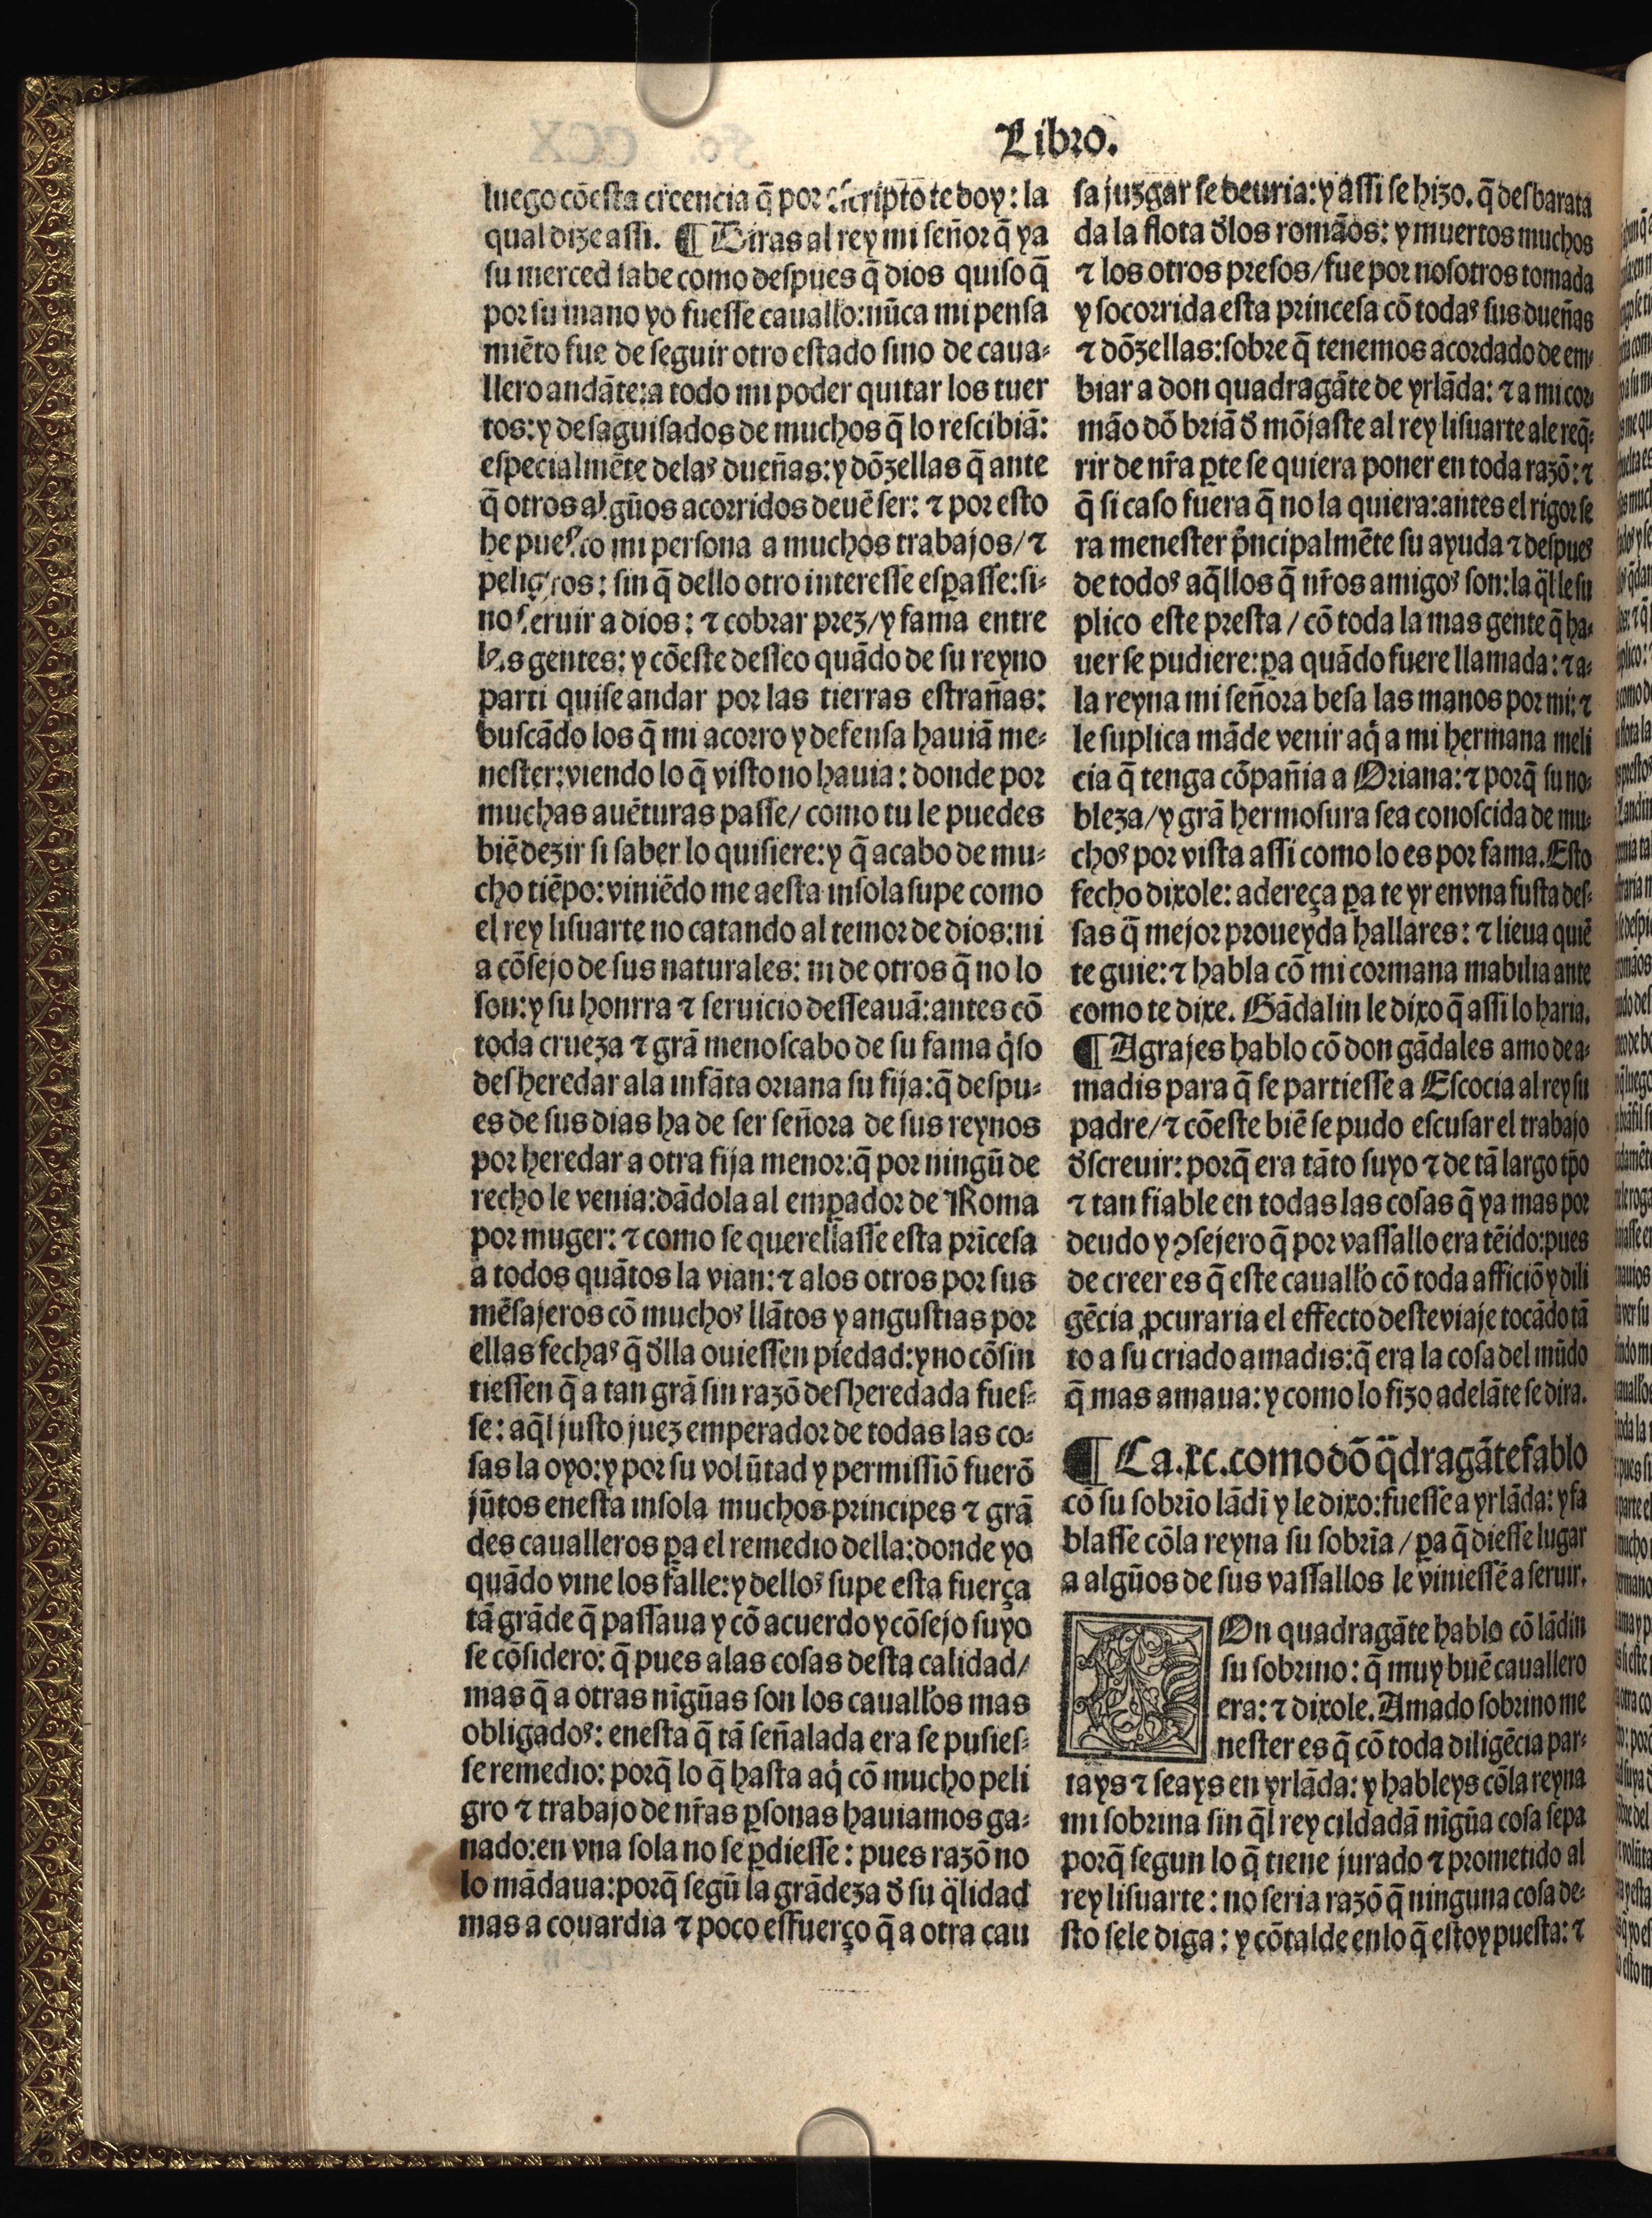 Libro.
luego cõesta creencia q̃ por escripto te doy: la
qual dize assi. ¶ Diras al rey mi señor q̃ ya
su merced sabe como despues q̃ dios quiso q̃
por su mano yo fuesse cauallo: nũca mi pensa
miẽto fue de seguir otro estado sino de caua-
llero andãte: a todo mi poder quitar los tuer
tos: y desaguisados de muchos q̃ lo rescibiã:
especialmẽte delas dueñas: y dõzellas q̃ ante
q̃ otros algũos acorridos deuẽ ser: ⁊ por esto
he puesto mi persona a muchos trabajos/ ⁊
peligros: sin q̃ dello otro interesse esꝑasse: si-
no seruir a dios: ⁊ cobrar prez/ y fama entre
las gentes: y cõeste desseo quãdo de su reyno
parti quise andar por las tierras estrañas:
buscãdo los q̃ mi acorro y defensa hauiã me-
nester: viendo lo q̃ visto no hauia: donde por
muchas auẽturas passe/ como tu le puedes
biẽ dezir si saber lo quisiere: y q̃ acabo de mu-
cho tiẽpo: viniẽdo me aesta insola supe como
el rey lisuarte no catando al temor de dios: ni
a cõsejo de sus naturales: ni de otros q̃ no lo
son: y su honrra ⁊ seruicio desseauã: antes cõ
toda crueza ⁊ grã menoscabo de su fama q̃so
desheredar ala infãta oriana su fija: q̃ despu-
es de sus dias ha de ser señora de sus reynos
por heredar a otra fija menor: q̃ por ningũ de
recho le venia: dãdola al emꝑador de Roma
por muger: ⁊ como se querellasse esta prĩcesa
a todos quãtos la vian: ⁊ alos otros por sus
mẽsajeros cõ muchos llãtos y angustias por
ellas fechas q̃ ðlla ouiessen piedad: y no cõsin
tiessen q̃ a tan grã sin razõ desheredada fues-
se: aq̃l justo juez emperador de todas las co-
sas la oyo: y por su volũtad y permissiõ fuerõ
jũtos enesta insola muchos principes ⁊ grã
des caualleros ꝑa el remedio della: donde yo
quãdo vine los falle: y dellos supe esta fuerça
tã grãde q̃ passaua y cõ acuerdo y cõsejo suyo
se cõsidero: q̃ pues alas cosas desta calidad/
mas q̃ a otras nĩgũas son los cauallos mas
obligados: enesta q̃ tã señalada era se pusies-
se remedio: porq̃ lo q̃ hasta aq̃ cõ mucho peli
gro ⁊ trabajo de nr̃as ꝑsonas hauiamos ga-
nado: en vna sola no se ꝑdiesse: pues razõ no
lo mãdaua: porq̃ segũ la grãdeza ð su q̃lidad
mas a couardia ⁊ poco esfuerço q̃ a otra cau
sa juzgar se deuria: y assi se hizo. q̃ desbarata
da la flota ðlos romãos: y muertos muchos
⁊ los otros presos/ fue por nosotros tomada
y socorrida esta princesa cõ todas sus dueñas
⁊ dõzellas: sobre q̃ tenemos acordado de em-
biar a don quadragãte de yrlãda: ⁊ a mi cor-
mão dõ briã ð mõjaste al rey lisuarte a le req̃-
rir de nr̃a ꝑte se quiera poner en toda razõ: ⁊
q̃ si caso fuera q̃ no la quiera: antes el rigor se
ra menester p̃ncipalmẽte su ayuda ⁊ despues
de todos aq̃llos q̃ nr̃os amigos son: la q̃l le su
plico este presta/ cõ toda la mas gente q̃ ha-
uer se pudiere: ꝑa quãdo fuere llamada: ⁊ a-
la reyna mi señora besa las manos por mi: ⁊
le suplica mãde venir aq̃ a mi hermana meli
cia q̃ tenga cõpañia a Oriana: ⁊ porq̃ su no-
bleza/ y grã hermosura sea conoscida de mu-
chos por vista assi como lo es por fama. Esto
fecho dixole: adereça ꝑa te yr en vna fusta des-
sas q̃ mejor proueyda hallares: ⁊ lieua quiẽ
te guie: ⁊ habla cõ mi cormana mabilia ante
como te dixe. Gãdalin le dixo q̃ assi lo haria.
¶ Agrajes hablo cõ don gãdales amo de a-
madis para q̃ se partiesse a Escocia al rey su
padre/ ⁊ cõeste biẽ se pudo escusar el trabajo
ðscreuir: porq̃ era tãto suyo ⁊ de tã largo tp̃o
⁊ tan fiable en todas las cosas q̃ ya mas por
deudo y ꝯsejero q̃ por vassallo era tẽido: pues
de creer es q̃ este cauallo cõ toda afficiõ y dili
gẽcia ꝓcuraria el effecto deste viaje tocãdo tã
to a su criado amadis: q̃ era la cosa del mũdo
q̃ mas amaua: y como lo fizo adelãte se dira.
¶ Ca. xc. como dõ q̃dragãte fablo
cõ su sobrĩo lãdĩ y le dixo: fuesse a yrlãda: y fa
blasse cõla reyna su sobrĩa/ ꝑa q̃ diesse lugar
a algũos de sus vassallos le viniessẽ a seruir.
DOn quadragãte hablo cõ lãdin
su sobrino: q̃ muy buẽ cauallero
era: ⁊ dixole. Amado sobrino me
nester es q̃ cõ toda diligẽcia par-
tays ⁊ seays en yrlãda: y hableys cõla reyna
mi sobrina sin q̃l rey cildadã nĩgũa cosa sepa
porq̃ segun lo q̃ tiene jurado ⁊ prometido al
rey lisuarte: no seria razõ q̃ ninguna cosa de-
sto sele diga: y cõtalde en lo q̃ estoy puesta: ⁊